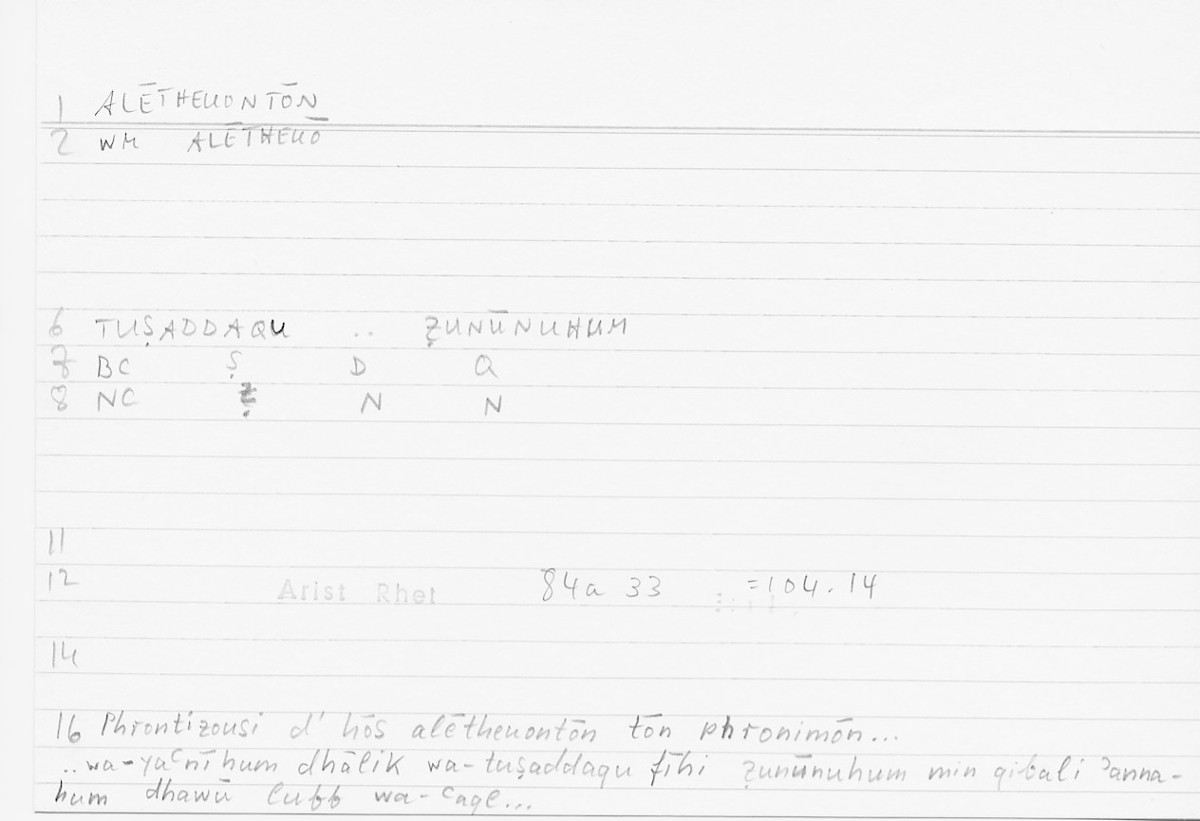 1 ALĒTHEUONTŌN
2 WM ALĒTHEUŌ
6 TUṢADDAQU .. ẒUNŪNUHUM
7 BC Ṣ D Q
8 NC Ẓ N N
11
12 Arist Rhet 84a 33 =104.14
14
16 Phrontízousi d' hōs alētheuontōn tōn phronimōn...
..wa-yaʿnīhum dhālik wa-tuṣaddaqu fīhi ẓunūnuhum min qibali ʾanna-
hum dhawū lubb wa-ʿaql...